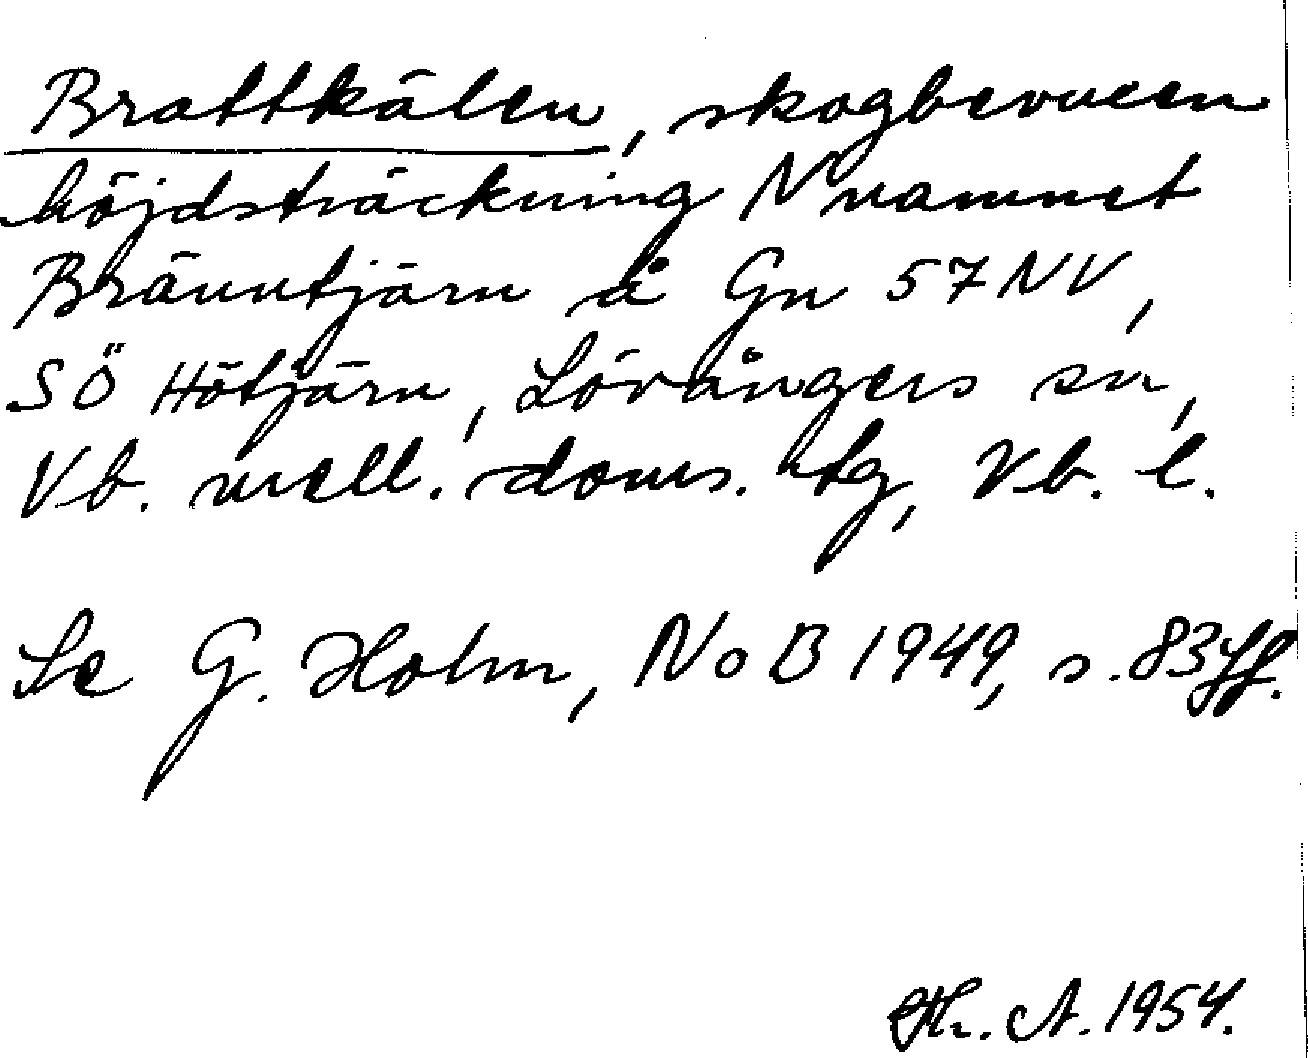 Brattkälen, skogbevuxen
höjdsträckning N namnet
Bränntjärn å Gn 57 NV,
SÖ Hötjärn, Lövångers sn,
Vb. mell. doms. tg, Vb. l.
Se G. Holm, NoB 1949, s. 83 ff.
Th. A. 1954.